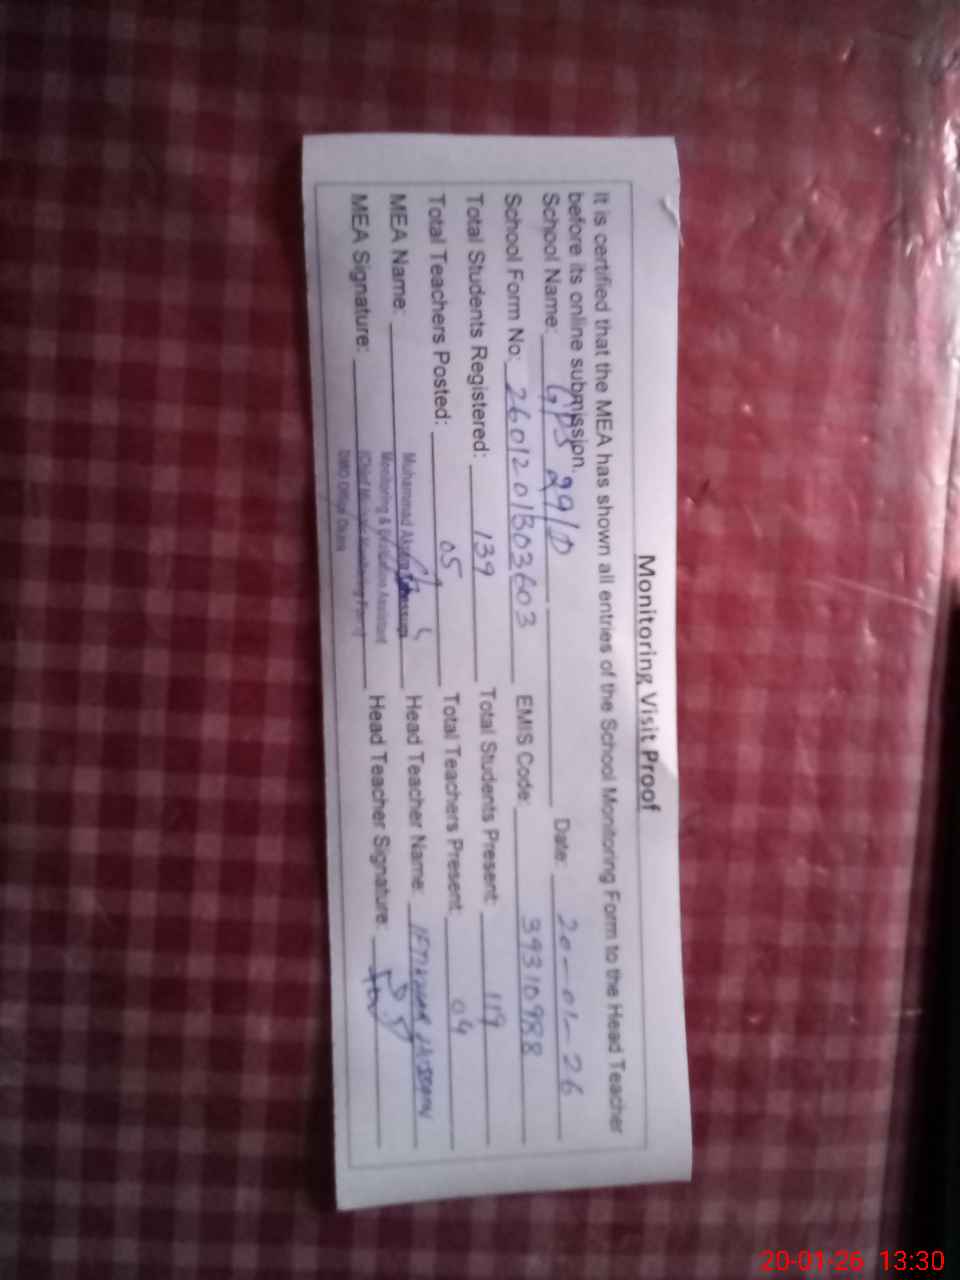 Monitoring Visit Proof
It is certified that the MEA has shown all entries of the School Monitoring Form to the Head Teacher
before its online submission.
School Name: GPS 29/D Date: 20-01-26
School Form No: 2601201303603 EMIS Code: 39310988
Total Students Registered: 139 Total Students Present: 119
Total Teachers Posted: 05 Total Teachers Present: 04
MEA Name: Muhammad Head Teacher Name: IFTIKHAR HUSSAIN
Monitoring & Evaluation Assistant
MEA Signature: Head Teacher Signature:
20-01-26 13:30